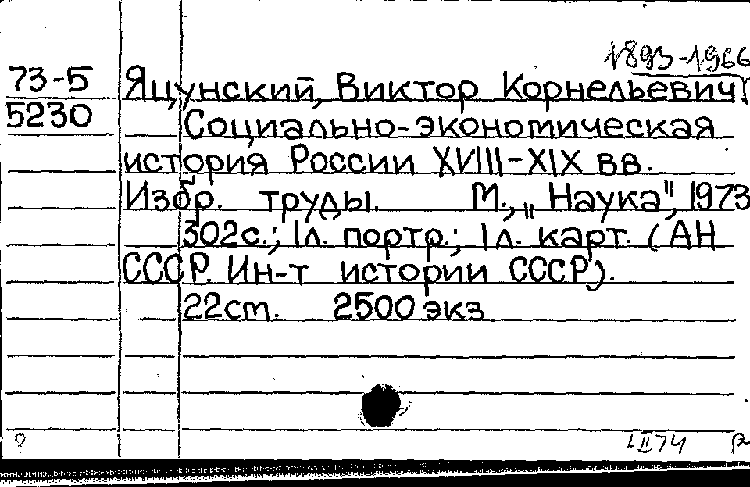 1893-1966
73-5 Яцунский, Виктор Корнельевич
5230 Социально-экономическая
история России XVIII-XIX вв.
Избр. труды. М., „Наука", 1973
302с.; 1л. портр.; 1л. карт. (АН
СССР. Ин-т истории СССР).
22ст. 2500 экз
II 74